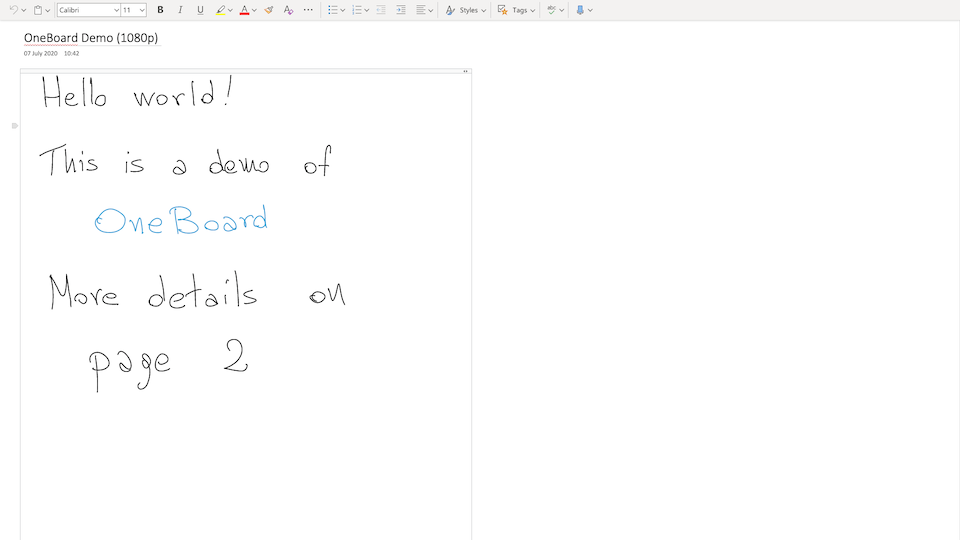 Calibri 11 B I U A A Styles Tags abc
OneBoard Demo (1080p)
07 July 2020 10:42
Hello world!
This is a demo of
OneBoard
More details on
page 2